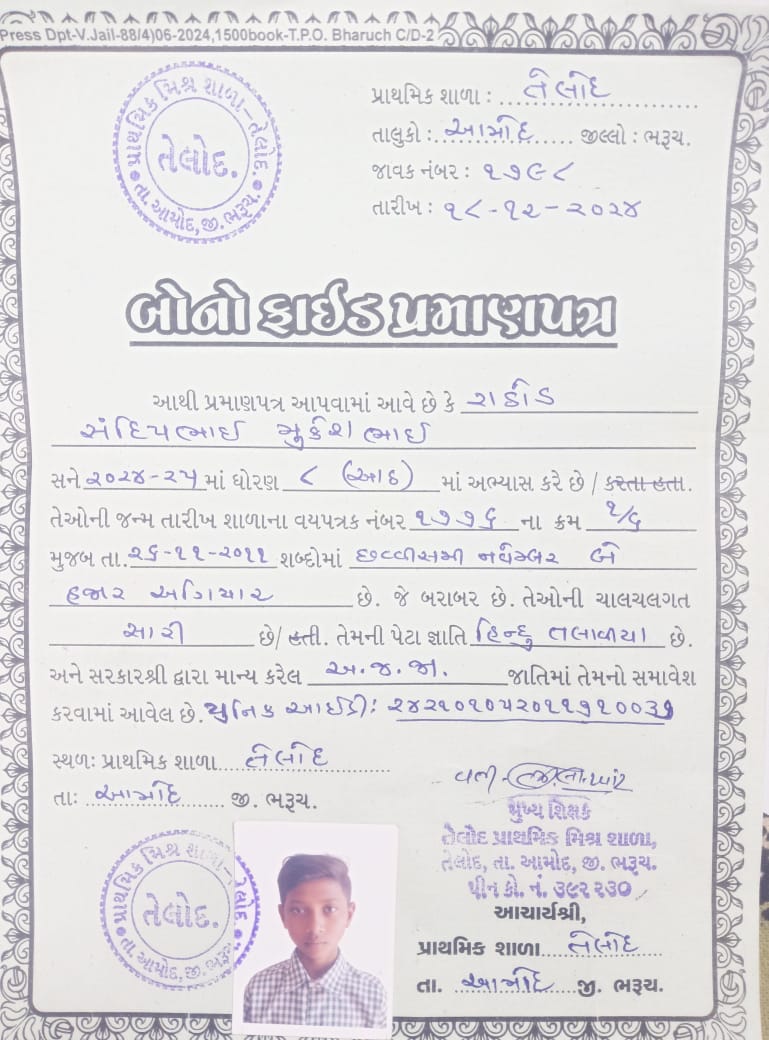 Press Dpt-V.Jail-88/4)06-2024,1500book-T.P.O. Bharuch C/D-2
પ્રાથમિક મિશ્ર શાળા – તેલોદ.
તેલોદ.
તા. આમોદ, જી. ભરૂચ.
પ્રાથમિક શાળા : તેલોદ
તાલુકો : આમોદ જીલ્લો : ભરૂચ.
જાવક નંબર : ૧૭૯૮
તારીખ : ૧૮-૧૨-૨૦૨૪
બોનોફાઈડ પ્રમાણપત્ર
આથી પ્રમાણપત્ર આપવામાં આવે છે કે રાઠોડ
સંદિપભાઈ મુકેશભાઈ
સને ૨૦૨૪-૨૫ માં ધોરણ ૮ (આઠ) માં અભ્યાસ કરે છે / કરતા હતા.
તેઓની જન્મ તારીખ શાળાના વયપત્રક નંબર ૧૭૭૬ ના ક્રમ ૧/૬
મુજબ તા. ૨૬-૧૧-૨૦૧૧ શબ્દોમાં છવ્વીસમી નવેમ્બર બે
હજાર અગિયાર છે. જે બરાબર છે. તેઓની ચાલચલગત
સારી છે/ હતી. તેમની પેટા જ્ઞાતિ હિન્દુ તલાવીયા છે.
અને સરકારશ્રી દ્વારા માન્ય કરેલ અ.જ.જા. જાતિમાં તેમનો સમાવેશ
કરવામાં આવેલ છે. યુનિક આઈડી: ૨૪૨૧૦૧૦૫૨૦૧૧૭૧૦૦૩૭
સ્થળ: પ્રાથમિક શાળા તેલોદ
તા: આમોદ જી. ભરૂચ.
વતી
મુખ્ય શિક્ષક
તેલોદ પ્રાથમિક મિશ્ર શાળા,
તેલોદ, તા. આમોદ, જી. ભરૂચ.
પીન કો. નં. ૩૯૨૨૩૦
આચાર્યશ્રી,
પ્રાથમિક શાળા તેલોદ
તા. આમોદ જી. ભરૂચ.
પ્રાથમિક મિશ્ર શાળા – તેલોદ
તેલોદ.
તા. આમોદ, જી. ભરૂચ